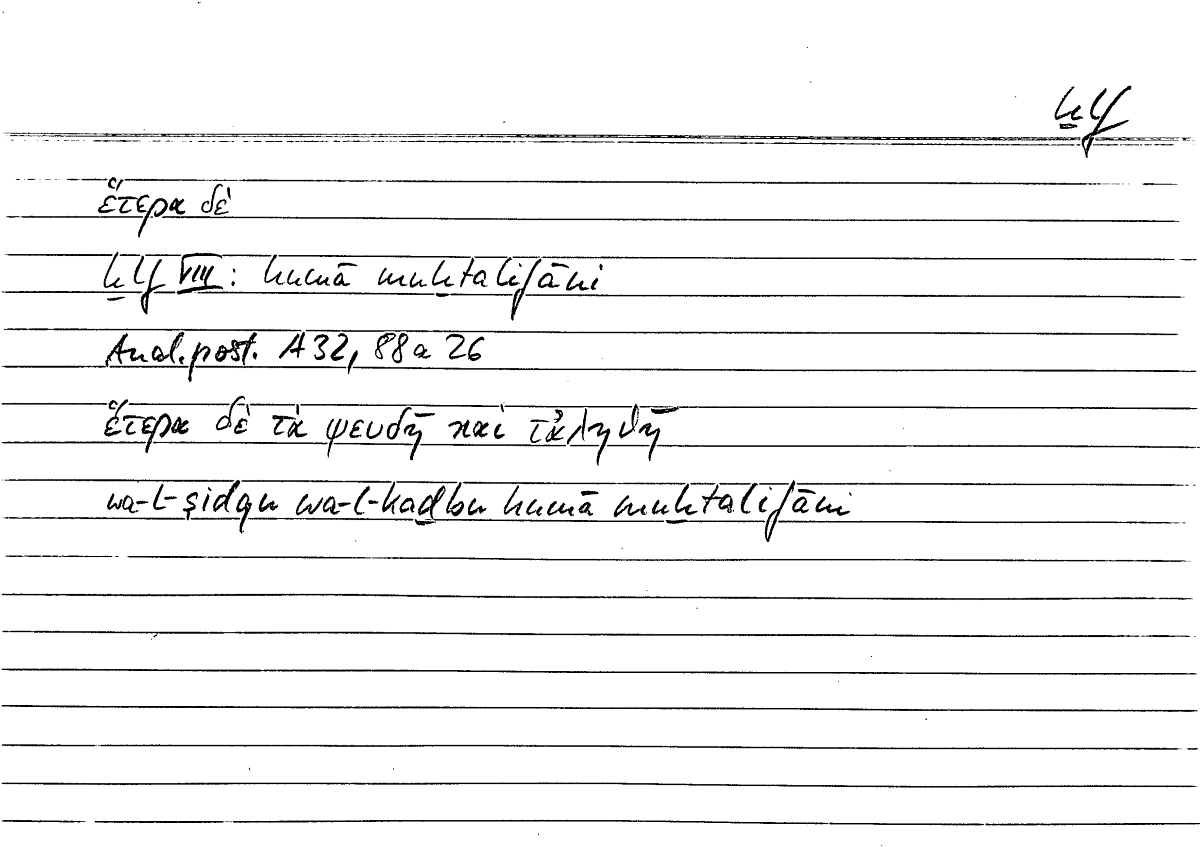 ḫlf
ἕτερα δέ
ḫlf VIII: humā muḫtalifāni
Anal. post. A 32, 88a 26
ἕτερα δὲ τὰ ψευδῆ καὶ τἀληθῆ
wa-l-ṣidqu wa-l-kaḏbu humā muḫtalifāni